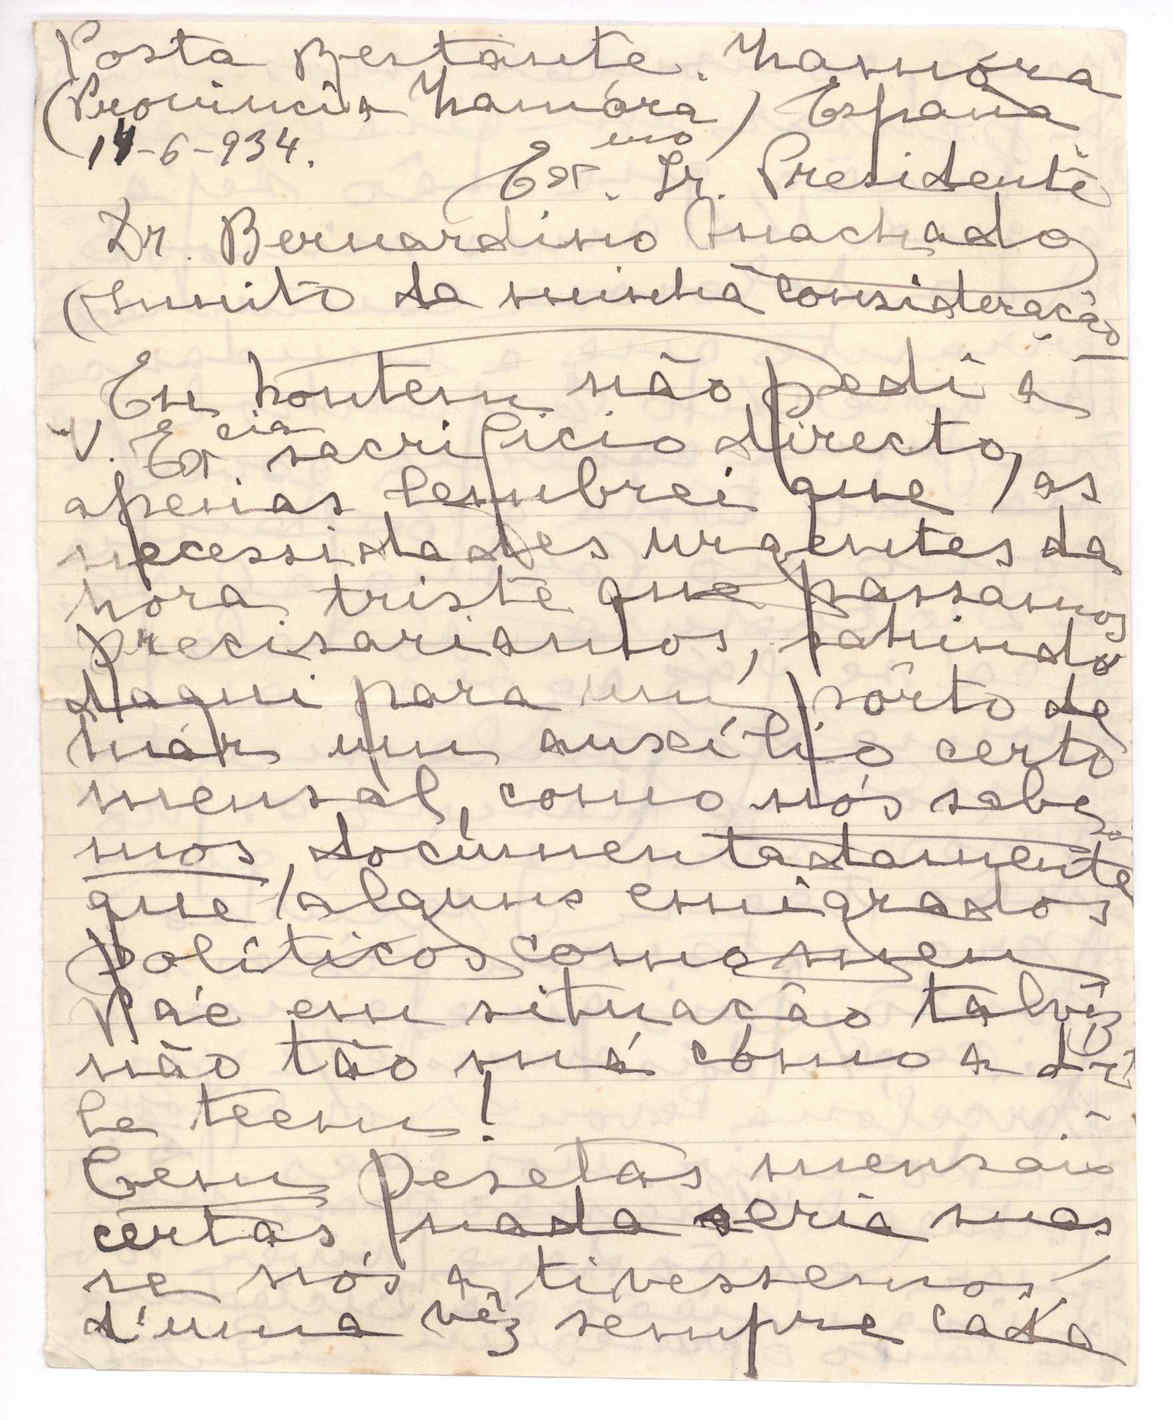 Posta Restante. Zamóra
(Provincia Zamóra) España
14-6-934.
Ex.mo Sr. Presidente
Dr. Bernardino Machado
(muito da minha consideração
Eu hontem não pedi a
V. Ex.cia sacrificio directo,
apenas lembrei que, as
necessidades urgentes da
hora triste que passamos
precisariamos, sahindo
daqui para um pôrto de
már um auxílio certo
mensal, como nós sabe
mos, documentadamente
que alguns emigrados
políticos como meu
Páe em situação talvêz
não tão má cómo a dê
le teem!
Cem pesetas mensais
certas, nada seria mas
se nós a tivessemos
d'uma vêz sempre cada